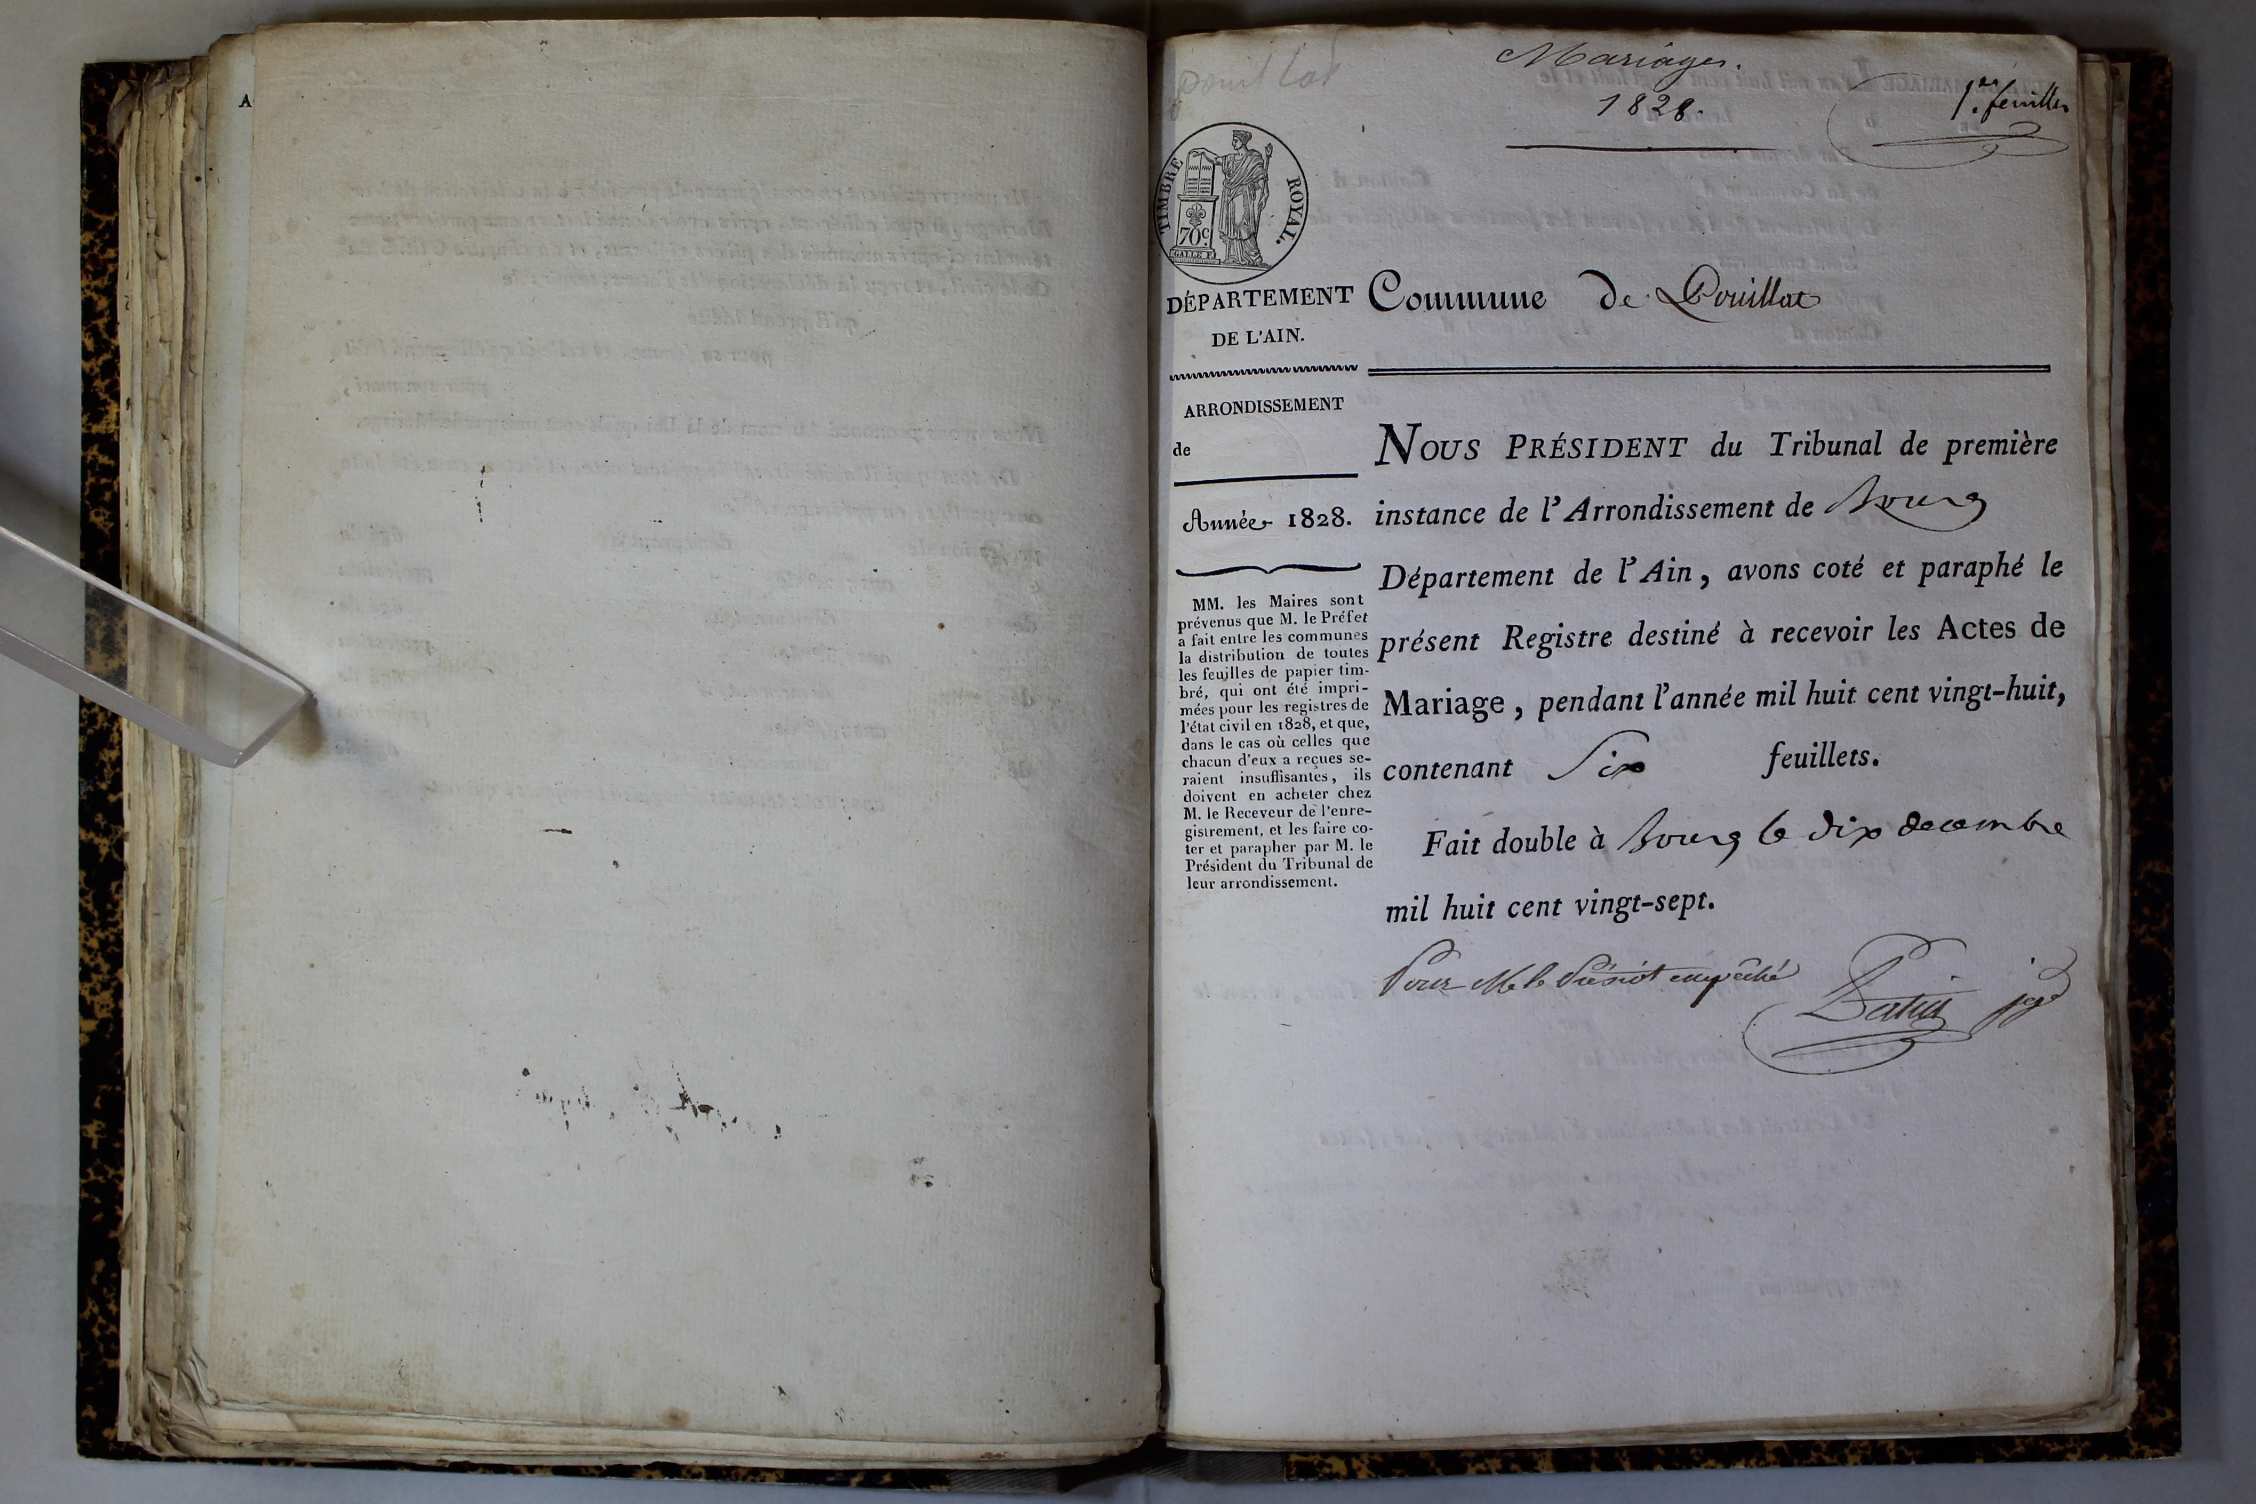 A
pouillat
Mariages.
1828.
1er feuillet
TIMBRE ROYAL.
70c.
GALLE F.
DÉPARTEMENT
DE L'AIN.
Commune de Pouillat
ARRONDISSEMENT
de
Année 1828.
MM. les Maires sont
prévenus que M. le Préfet
a fait entre les communes
la distribution de toutes
les feuilles de papier tim-
bré, qui ont été impri-
mées pour les registres de
l'état civil en 1828, et que,
dans le cas où celles que
chacun d'eux a reçues se-
raient insuffisantes, ils
doivent en acheter chez
M. le Receveur de l'enre-
gistrement, et les faire co-
ter et parapher par M. le
Président du Tribunal de
leur arrondissement.
NOUS PRÉSIDENT du Tribunal de première
instance de l'Arrondissement de Bourg
Département de l'Ain, avons coté et paraphé le
présent Registre destiné à recevoir les Actes de
Mariage, pendant l'année mil huit cent vingt-huit,
contenant Six feuillets.
Fait double à Bourg le dix decembre
mil huit cent vingt-sept.
Pour Mr le Présidt empêché